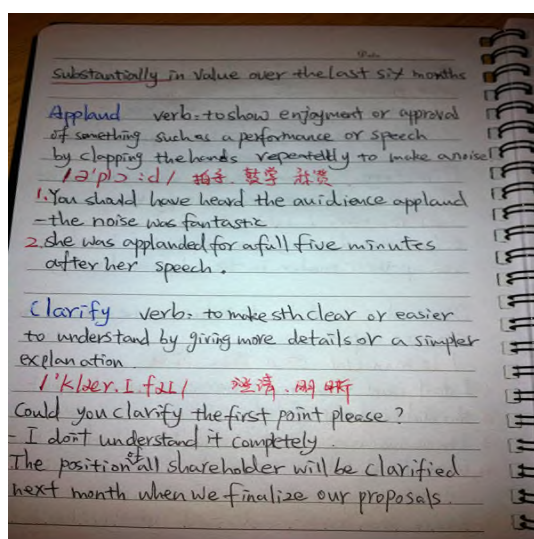 substantially in value over the last six months
Appland verb: to show enjoyment or approval
of something such as a performance or speech
by clapping the hands repentedly to make a noise
/ə'plɔ:d/ 拍手. 鼓掌 称赞
1. You should have heard the auidience appland
- the noise was fantastic
2. she was applanded for a full five minutes
after her speech.
Clarify verb: to make sth clear or easier
to understand by giving more details or a simpler
explanation
/'klær.I.faI/ 澄清. 明晰
Could you clarify the first point please?
- I don't understand it completely
The position of all shareholder will be clarified
next month when we finalize our proposals.